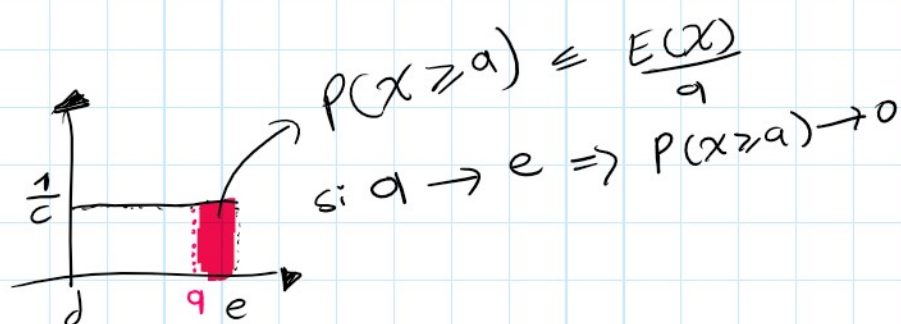 P(X ≥ a) ≤ E(X)/a
si a → e ⇒ P(X ≥ a) → 0
1/c
d a e